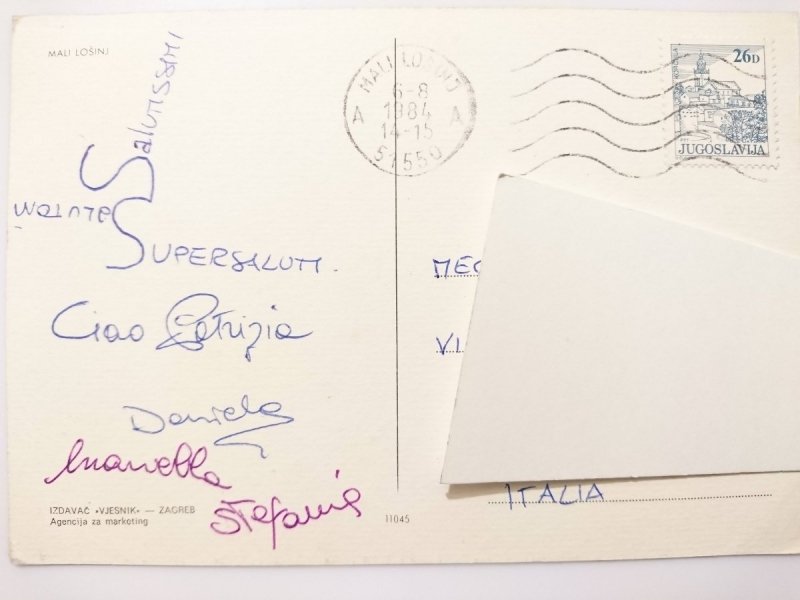 MALI LOŠINJ
MALI LOŠINJ
6-8
1984
A A
14-15
51550
26D
JUGOSLAVIJA
SALUTISSIMI
SUPERSALUTI.
Ciao Patrizia
Daniela
Marella
Stefania
MEC
VI
ITALIA
IZDAVAČ »VJESNIK« — ZAGREB
Agencija za marketing
11045